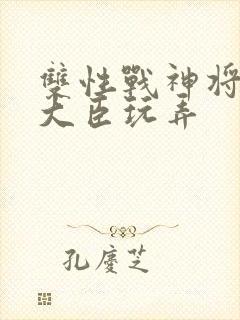 雙性戰神將
大臣玩弄
孔慶芝